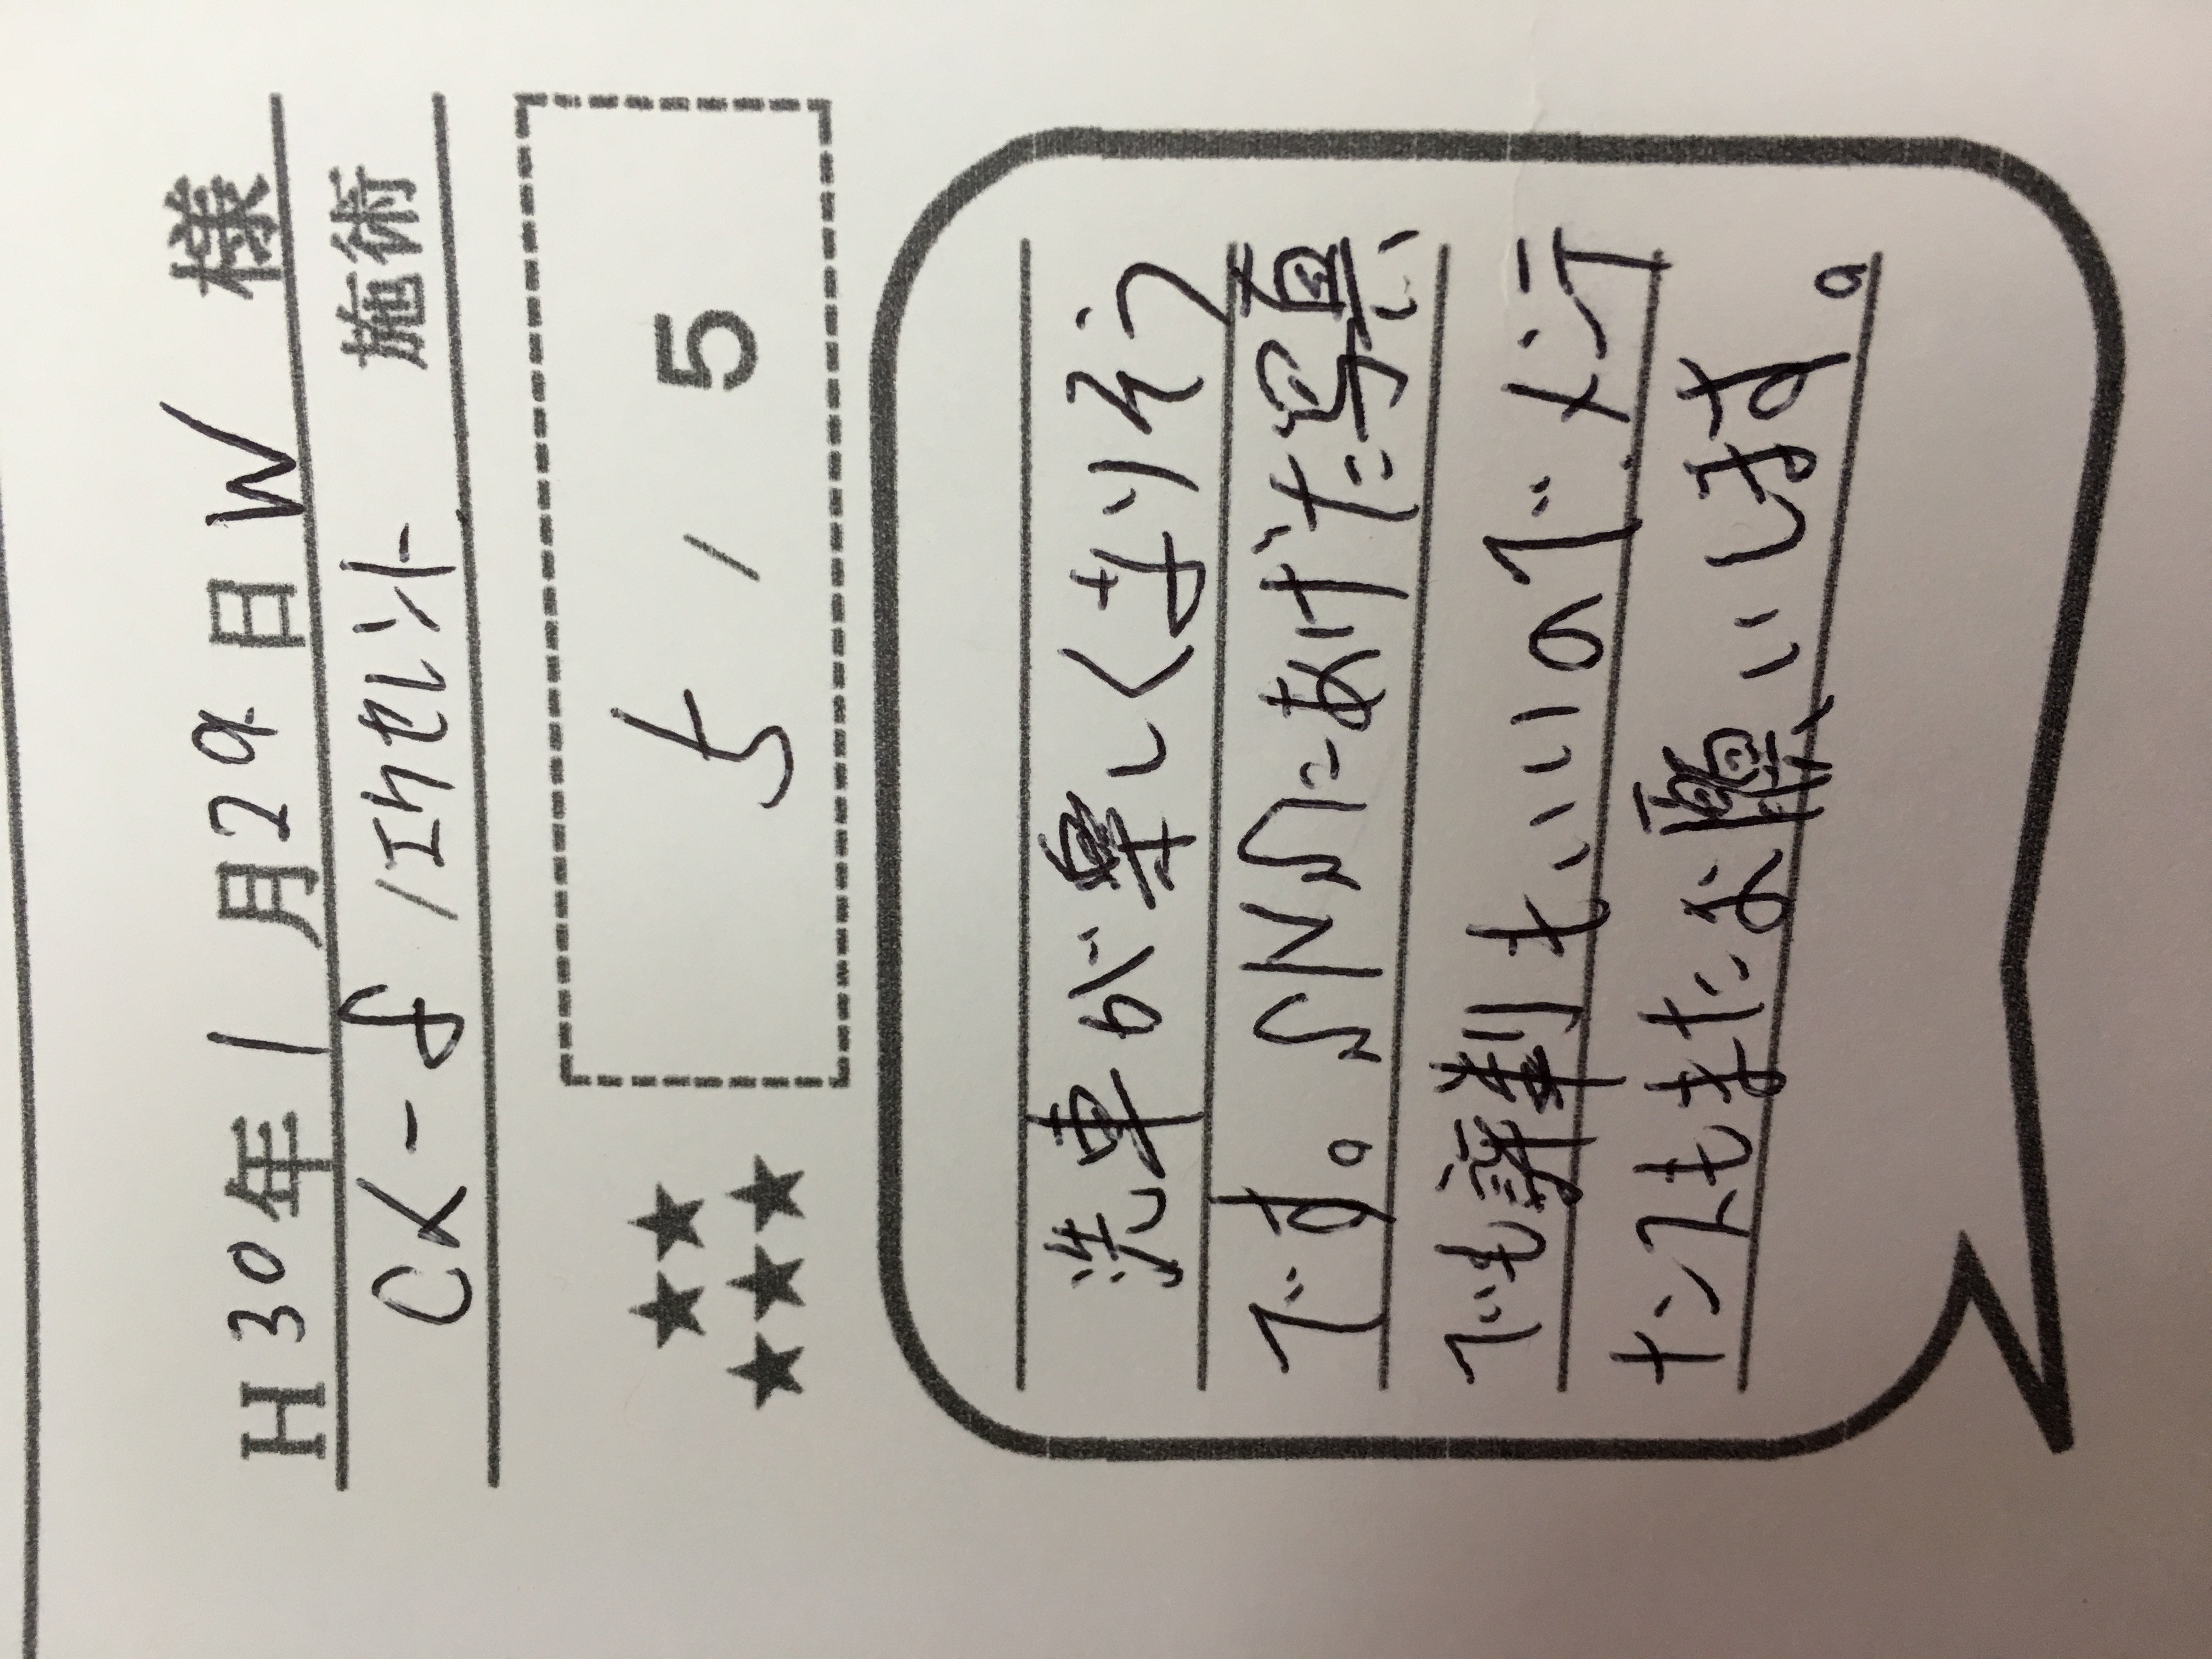 H30年1月29日W様
CX-8/エクセレント 施術
★★
★★★
5/5
洗車が楽しくなりそう
です。SNSにあげた写真
でも評判もいいのでメンテ
ナンスもまたお願いします。